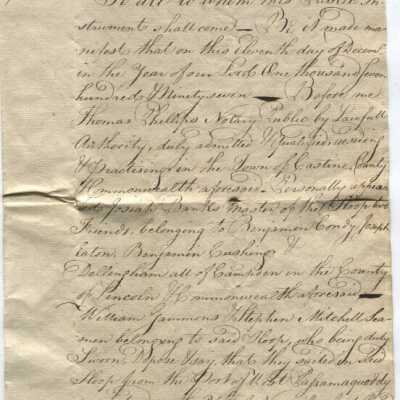 To all to whom this Public In-
strument shall come – Be it made ma-
nifest that on this eleventh day of Decem
in the Year of our Lord One thousand seven
hundred & Ninety seven — Before me
Thomas Phillips Notary Public by Lawfull
Authority, duly admitted & residing
& Practising in the Town of Castine County
& Commonwealth aforesaid – Personally appear
Josiah Banks Master of the Sloop two
Friends, belonging to Benjamin Condy, Joseph
Eaton, Benjamin Cushing &
Dellingham all of Campden in the County
of Lincoln & Commonwealth aforesaid —
William Jammons & Stephen Mitchell Sea-
men belonging to said Sloop, who being duly
Sworn Depose & say, that they sailed in said
Sloop, from the Port of West Passamaquoddy